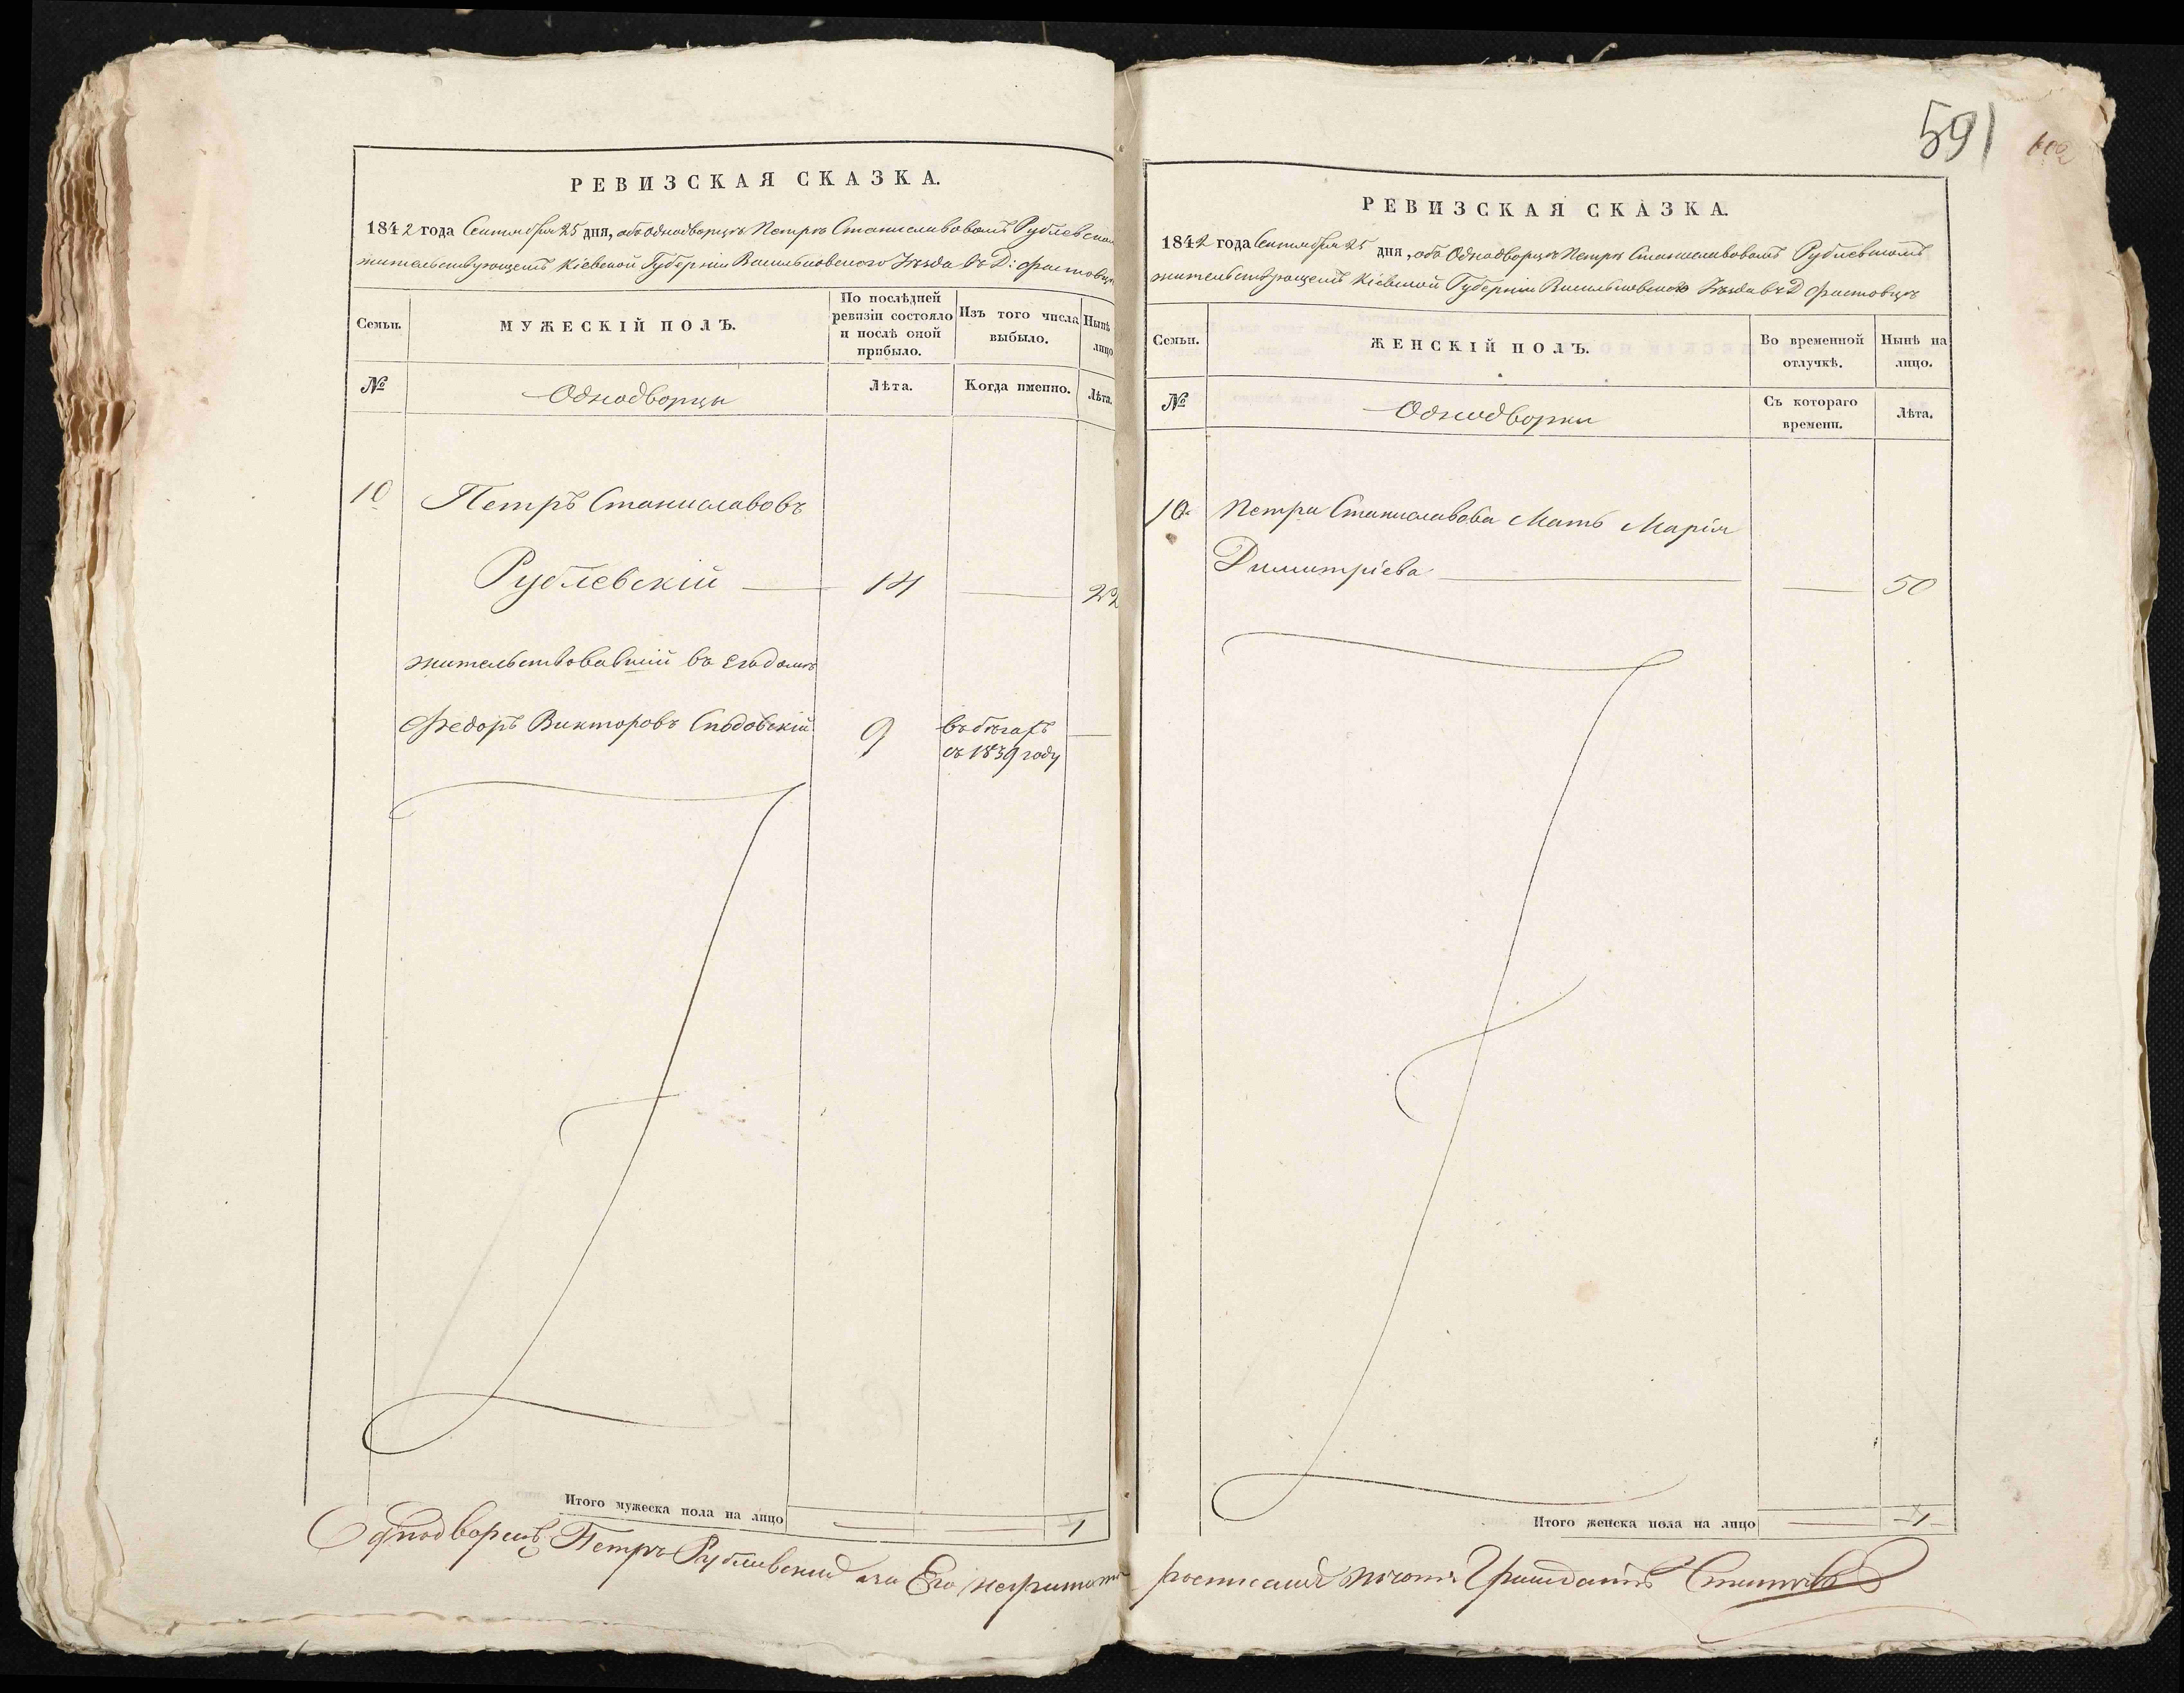 РЕВИЗСКАЯ СКАЗКА.
1842 года Сентября 25 дня, объ Однодворцѣ Петрѣ Станиславовомъ Рублевском
жительствующемъ Кіевской Губерніи Васильковского Уѣзда въ Д: Фастовцѣ
Семьи.
МУЖЕСКІЙ ПОЛЪ.
По послѣдней
ревизіи состояло
и послѣ оной
прибыло.
Изъ того числа
выбыло.
Нынѣ
лицо
№
Однодворцы
Лѣта.
Когда именно.
Лѣта.
10
Петръ Станиславовъ
Рублевскій
14
22
жительствовавшій въ его домѣ
Федоръ Викторовъ
9
въ бѣгахъ
съ 1839 году
Итого мужеска пола на лицо
1
Однодворецъ Петръ Рублевский а за Его неграмотн
591
602
РЕВИЗСКАЯ СКАЗКА.
1842 года Сентября 25 дня, объ Однодворцѣ Петрѣ Станиславовомъ Рублевскомъ
жительствующемъ Кіевской Губерніи Васильковского Уѣзда въ Д Фастовцѣ
Семьи.
ЖЕНСКІЙ ПОЛЪ.
Во временной
отлучкѣ.
Нынѣ на
лицо.
№
Однодворки
Съ котораго
времени.
Лѣта.
10.
Петра Станиславова Мать Марія
Димитріева
50
Итого женска пола на лицо
1